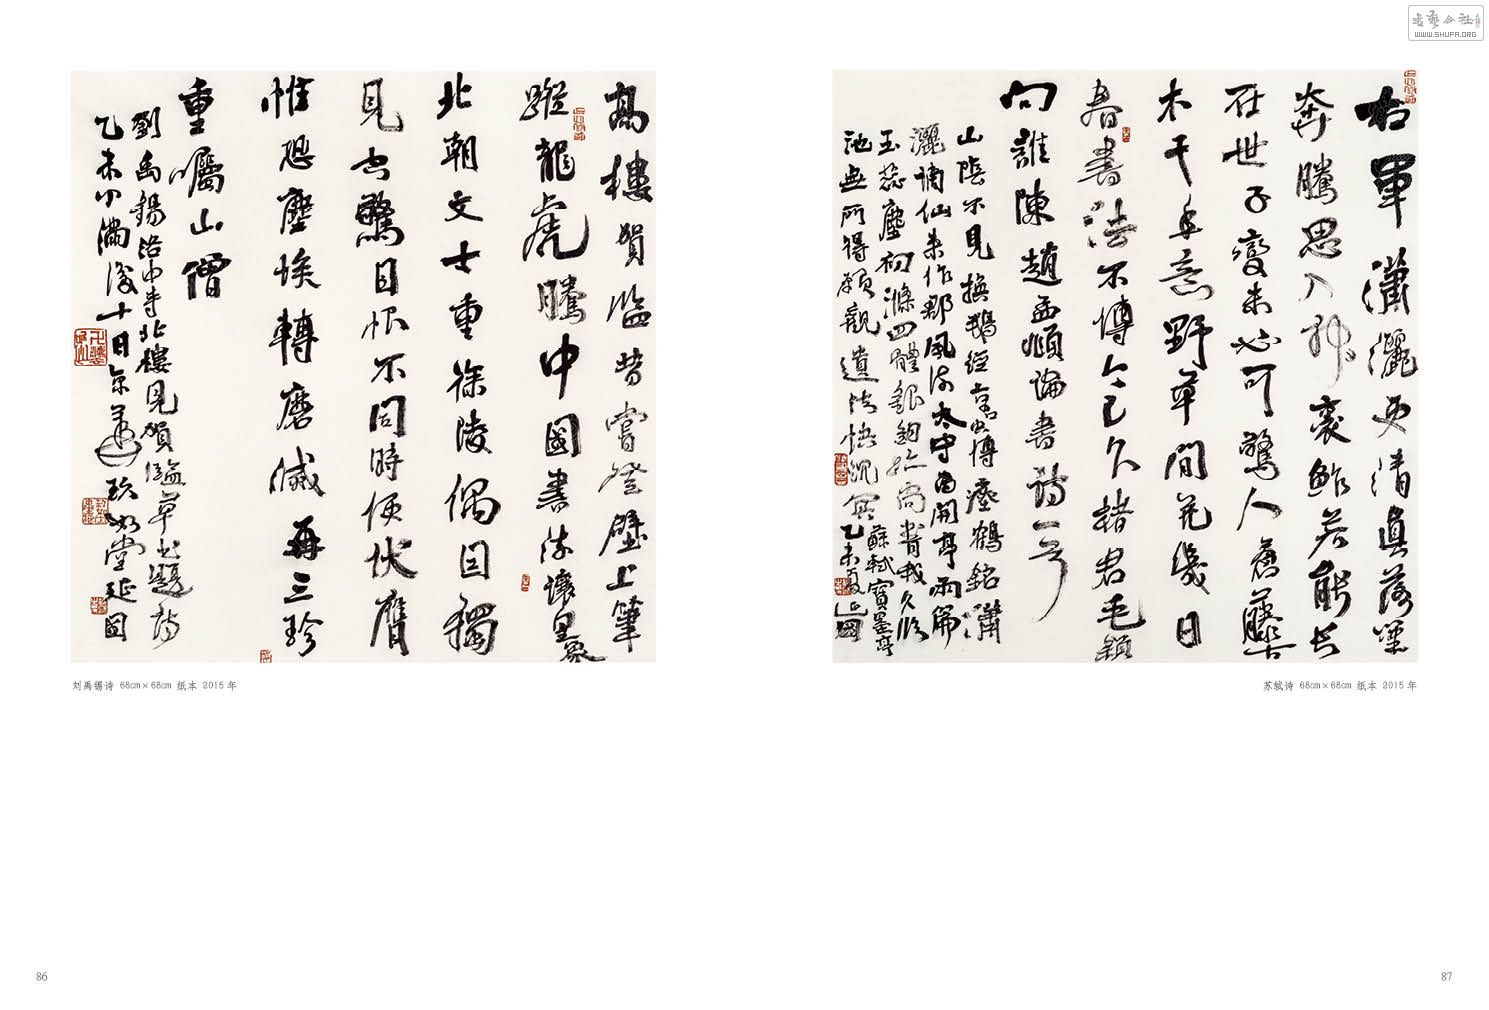 高樓賀監昔嘗登壁上筆
蹤龍虎騰中國書流讓皇象
北朝文士重徐陵偶因獨
見空驚目恨不同時便伏膺
惟恐塵埃轉磨滅再三珍
重囑山僧
劉禹錫洛中寺北樓見賀監草書題詩
乙未小滿後十日京華玖如堂延国
刘禹锡诗 68cm×68cm 纸本 2015年
86
右軍瀟灑更清真落筆
奔騰思入神裹鮓若能長
在世子鸞未必可驚人舊藤古
木千年意野草閒花幾日
春書法不傳今已久楮君毛穎
向誰陳趙孟頫論書詩一首
山陰不見換鵝經京口傳瘞鶴銘瀟
灑謫仙來作郡風流太守為開亭兩篇
玉蕊塵初滌四體銀鉤跡尚青我久臨
池無所得願觀遺法快沉冥
蘇軾寶墨亭
乙未夏延國
苏轼诗 68cm×68cm 纸本 2015年
87
书艺公社
WWW.SHUFA.ORG